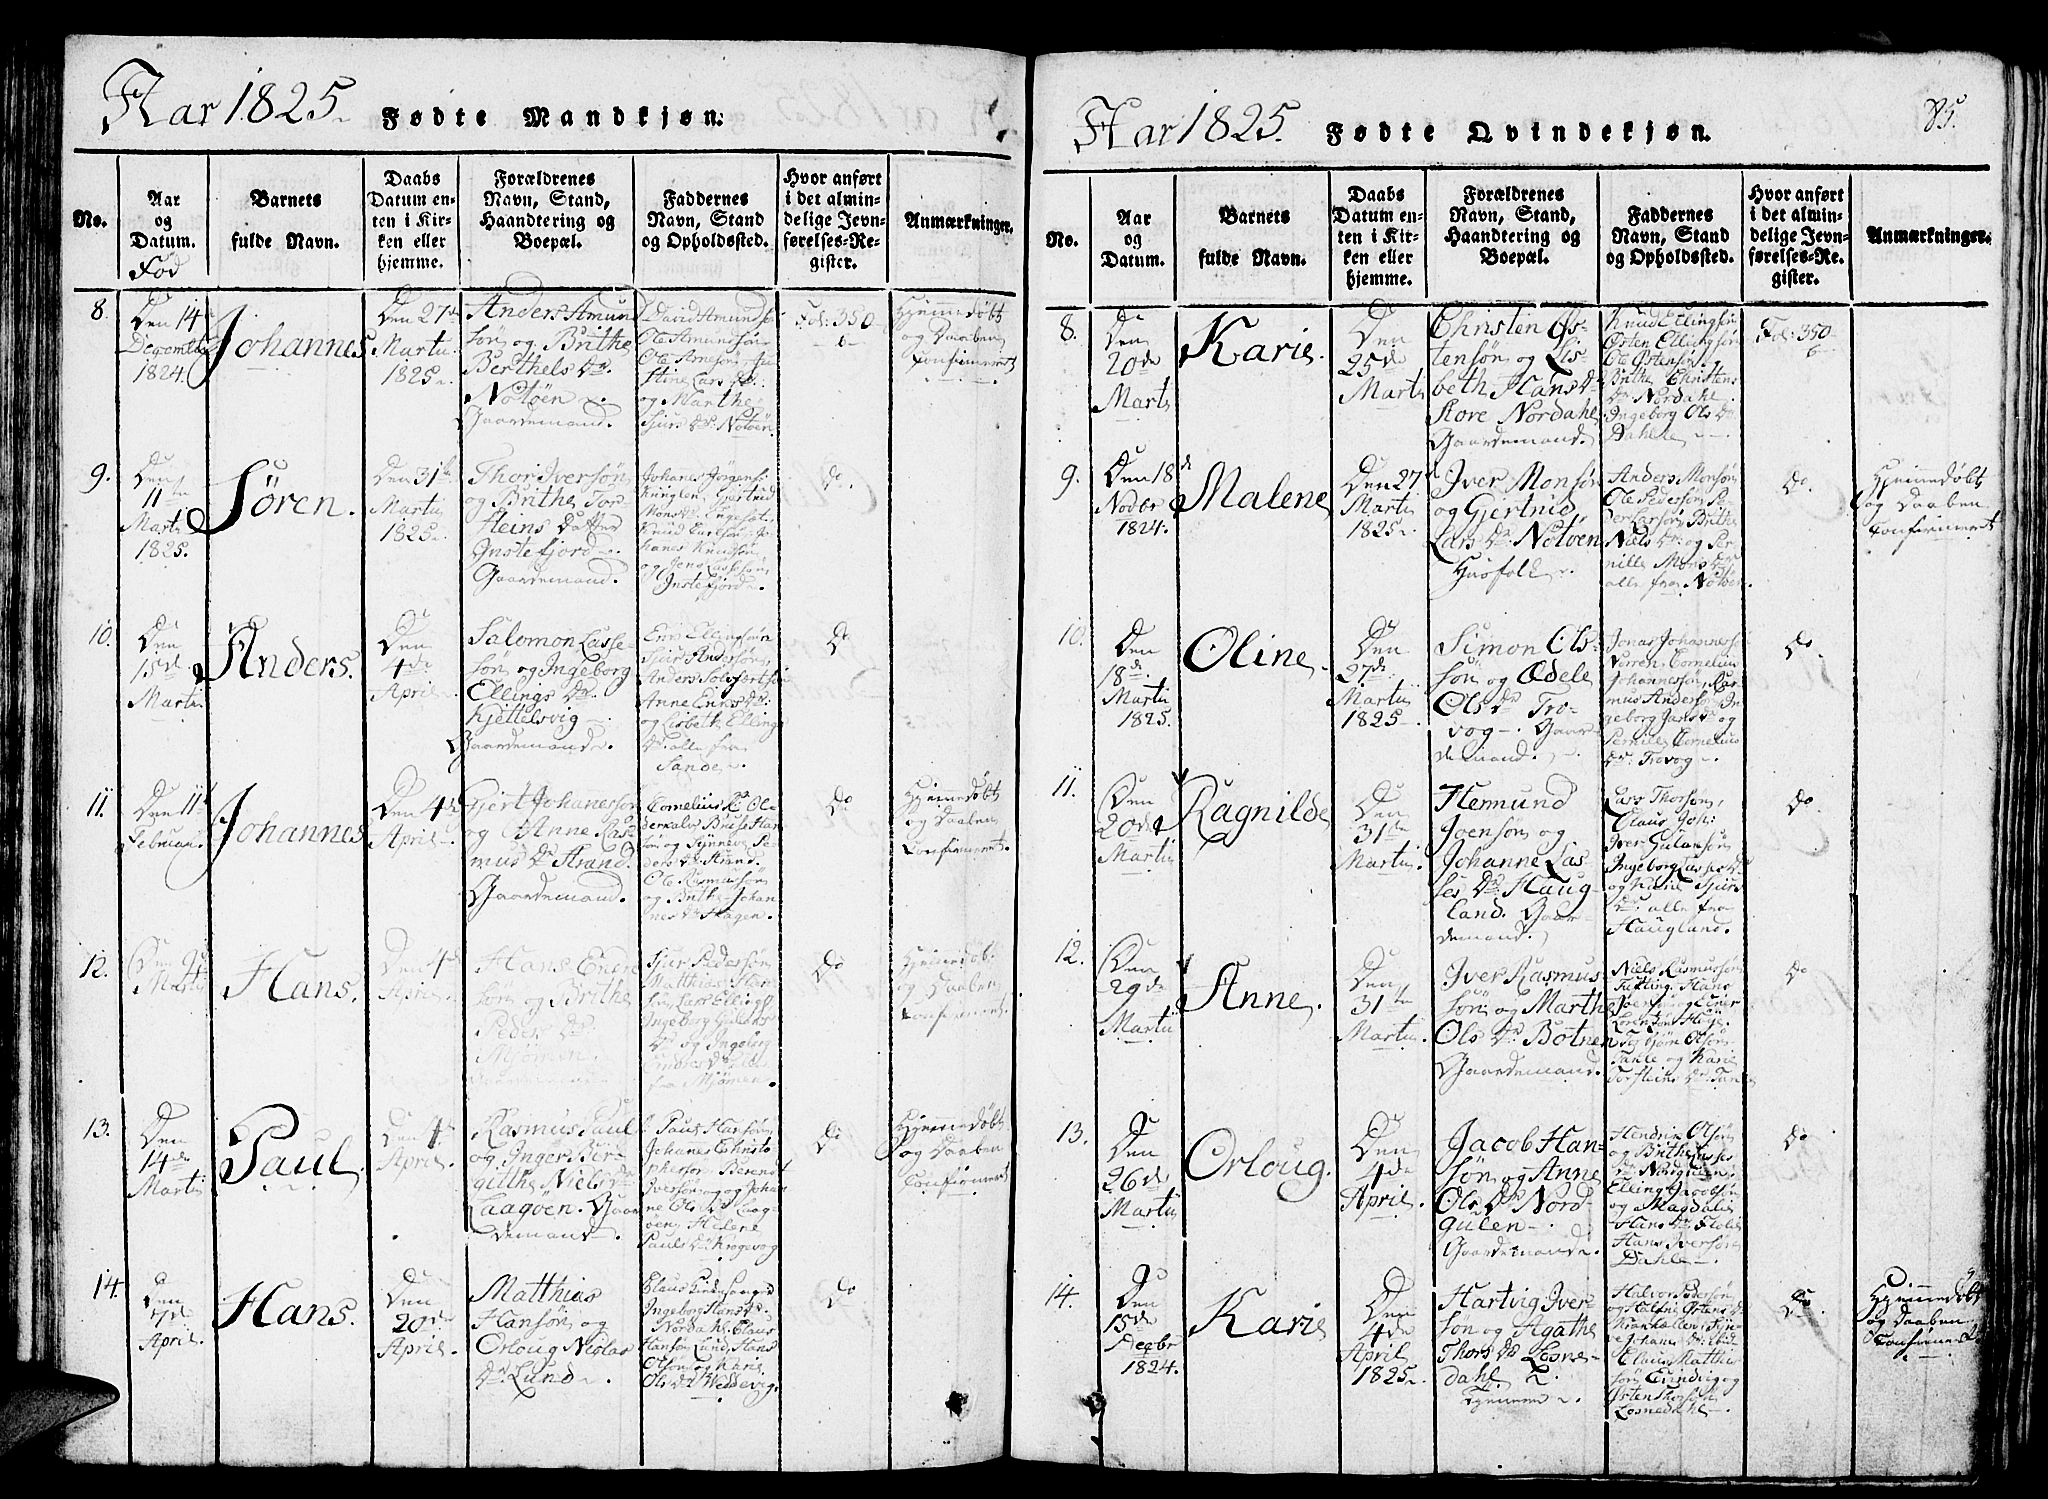 Aar 1825. Fødte Mandkjøn.
No.
Aar
og
Datum.
Fød
Barnets
fulde Navn.
Daabs
Datum en-
ten i Kir-
ken eller
hjemme.
Forældrenes
Navn, Stand,
Haandtering og
Boepæl.
Faddernes
Navn, Stand
og Opholdssted.
Hvor anført
i det almin-
delige Jevn-
førelses-Re-
gister.
Anmærkninger.
8.
Den 14
Decemb
1824.
Johannes
Den 27de
Martii
1825.
Anders Amund
søn og Brithe
Berthels Dr.
Notøen
Gaardemand.
David Amundsøn
Ole Amundsøn
Ole Arnesøn
Lars
og Marthe
Sjurs Dr. Notøen
Fol: 350
b
Hjemmedøbt
og Daaben
Confirmeret
9.
Den
11te
Martii
1825.
Søren.
Den 31te
Martii
1825.
Thor Iversøn
og Brithe Tor
steins Datter
Instefjord
Gaardemand.
Johanes Jørgens:
Gjertrud
Mons Dr. Engesæt
Knud Carlsøn Jo
hanes Knudsøn
og Jens Lassesøn
Instefjord
do.
10.
Den
15de
Martii
Anders.
Den
4de
April
Salomon Lasse-
søn og Ingeborg
Ellings Dr.
Kjettelsvig
Gaardemand.
Ellingsøn
Sjur Andersøn
Anders
Anne
og Lisbeth Ellings
Dr. alle fra
Sande
do
11.
Den 11te
Februarii
Johannes
Den 4de
April
Gjert Johanessøn
og Anne Ras-
mus Dr. Strand
Gaardemand.
Cornelius
og Synneve Pe-
ders Dr. Strand.
Ole Rasmussøn
og Brithe Johan
nes Dr. Skagen.
do
Hjemmedøbt
og Daaben
Confirmeret.
12.
Den
Martii
Hans.
Den 4de
April
Hans Endre
søn og Brithe
Peders Dr.
Mjømen
Sjur Pedersøn
Matthias Han
søn, Lars Elling
Ingeborg
Dr. og Ingeborg
Endres Dr. alle
fra Mjømen
do
Hjemmedøbt
og Daaben
Confirmeret.
13.
Den
14de
Martii
Paul.
Den 4de
April.
Rasmus Paul
og Inger Ber-
githe Niels Dr.
Laagøen. Gaar
demand.
Paul Hansøn
Johanes Christo
phersøn Berendt
Iversøn og Johan
ne Ols Dr. Laag-
øen, Helene
Pauls Dr. Krogevog
do
Hjemmedøbt
og Daaben
Confirmeret
14.
Den
7de
April.
Hans.
Den
20de
April.
Matthias
Hansøn og
Orloug Niclas
Dr. Lund
Claus
Ingeborg Hans Dr.
Nordahl Claus
Hansøn Lund, Hans
Olsøn og Karie
Ols Dr. Weddevig.
do
Aar 1825. Fødte Qvindekjøn.
85.
No.
Aar
og
Datum.
Barnets
fulde Navn.
Daabs
Datum en-
ten i Kir-
ken eller
hjemme.
Forældrenes
Navn, Stand,
Haandtering og
Boepæl.
Faddernes
Navn, Stand
og Opholdssted.
Hvor anført
i det almin-
delige Jevn-
førelses-Re-
gister.
Anmærkninger.
8.
Den
20de
Martii
Karie.
Den
25de
Martii
Christen Øs-
tensøn og Lis-
beth Hans Dr.
Store Nordahl
Gaardemand.
Knud Ellingsøn
Østen Ellingsøn
Ole Østensøn og
Brithe Christens
Dr. Nordahl
Ingeborg Ols Dr.
Dahle
Fol: 350
b
9.
Den 18de
Novbr
1824.
Malene
Den 27de
Martii
1825.
Iver Monsøn
og Gjertrud
Lars Dr. Notøen
Huusfolk
Anders Monsøn
Ole Pedersøn Pe
der Larsøn Brithe
Niels Dr. og Per
nille Mons Dr.
alle fra Notøen
do.
Hjemmedøbt
og Daaben
Confirmeret
10.
Den
18de
Martii
1825.
Oline.
Den
27de
Martii
1825.
Simon Ols-
søn og Oedele
Ols Dr. Tro-
vog. Gaar-
demand.
Jonas Johanness:
Verren, Cornelius
Johannessøn, Ras-
mus Andersøn, In-
geborg Jans Dr. og
Pernille Cornelius
Dr. Trovog
do.
11.
Den
20de
Martii
Ragnilde
Den
31te
Martii.
Hermund
Joensøn og
Johanne Las-
ses Dr. Haug-
land. Gaar-
demand.
Lars Thorsøn,
Claus Jos:
Iver
Ingeborg Lasses Dr.
og Karie Sjurs
Dr. alle fra
Haugland.
do.
12.
Den
29de
Martii
Anne.
Den
31te
Martii.
Iver Rasmus
søn og Marthe
Ols Dr. Botnen
Gaardemand.
Niels Rasmussøn
Hans
Iversøn og Einer
Torbjørn Olsøn
Takle og Karie
Torsteins Dr. Takle
do
13.
Den
26de
Martii
Orloug.
Den
4de
April.
Jacob Han-
søn og Anne
Ols Dr. Nord-
gulen
Gaardemand.
Hendrik Olsøn
og Brithe Lasses
Dr. Nordgulen,
Elling Jacobsøn
og Magdalie
Hans Dr. Flolid
Hans Iversøn
Dahle
do
14.
Den
15de
Decbr
1824.
Karie
Den
4de
April
1825.
Hartvig Iver-
søn og Agathe
Thors Dr. Losne-
dahl
Halvor Pedersøn
og Helene Østens Dr.
Claus Matthias
søn
Østen Thorsøn
Losnedahl
do
Hjemmedøbt
og Daaben
Confirmeret